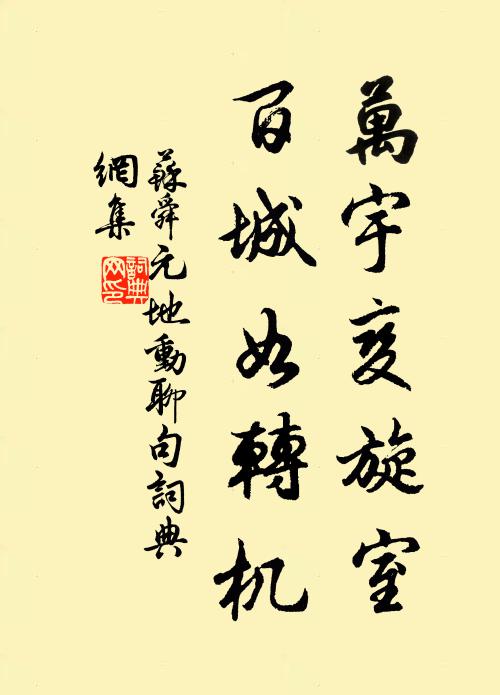 萬宇變旋室
百城如轉机
蘇舜元地動聊句詞典
網集
詞典網印